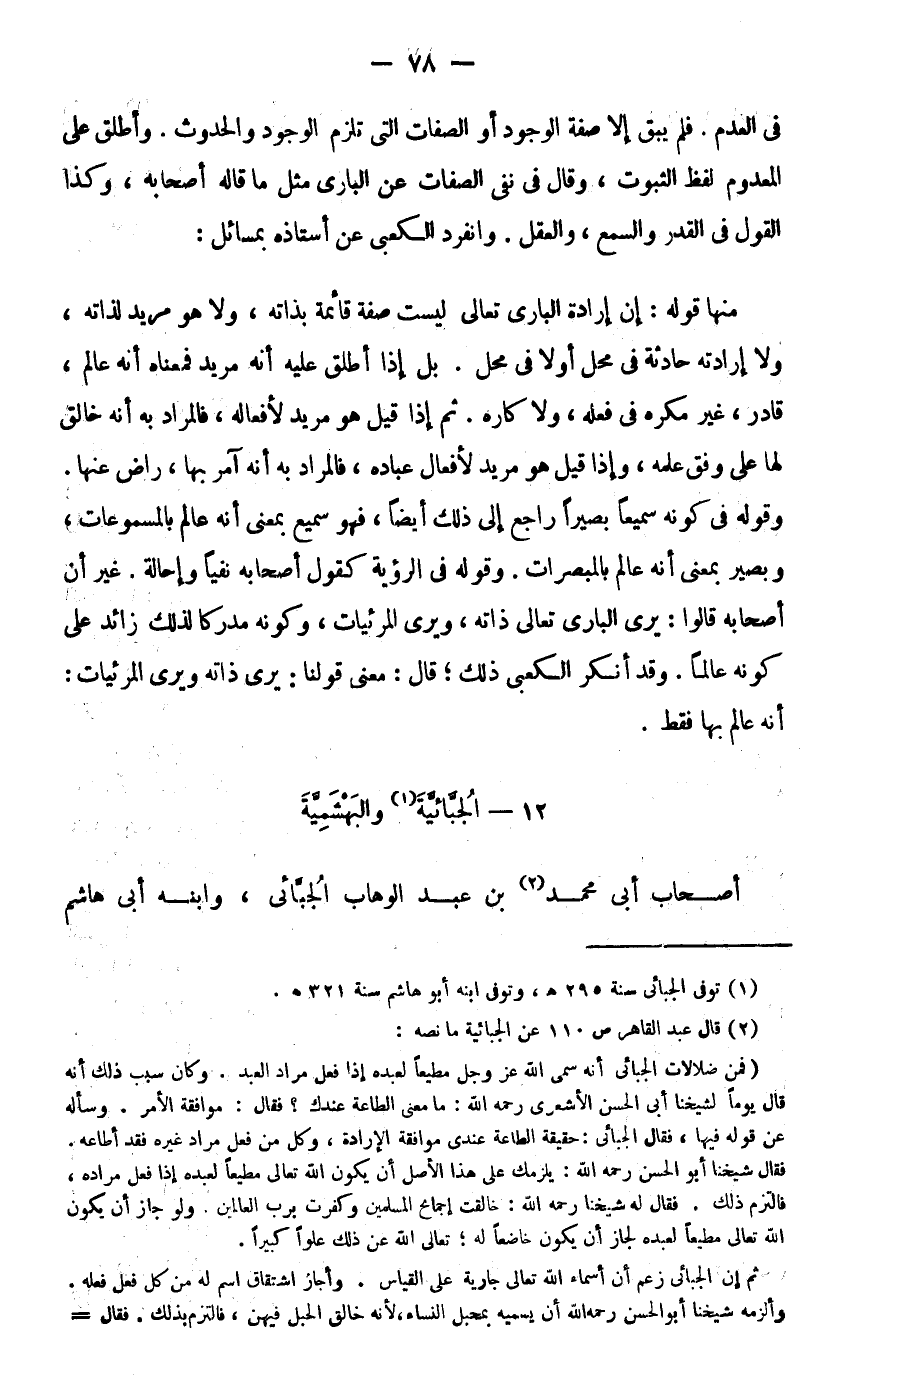 — ٧٨ —
فى العدم . فلم يبق إلا صفة الوجود أو الصفات التى تلزم الوجود والحدوث . وأطلق على
المعدوم لفظ الثبوت ، وقال فى نفى الصفات عن البارى مثل ما قاله أصحابه ، وكذا
القول فى القدر والسمع ، والعقل . وانفرد الكعبى عن أستاذه بمسائل :
منها قوله : إن إرادة البارى تعالى ليست صفة قائمة بذاته ، ولا هو مريد لذاته ،
ولا إرادته حادثة فى محل أولا فى محل . بل إذا أطلق عليه أنه مريد فمعناه أنه عالم ،
قادر ، غير مكره فى فعله ، ولا كاره . ثم إذا قيل هو مريد لأفعاله ، فالمراد به أنه خالق
لها على وفق علمه ، وإذا قيل هو مريد لأفعال عباده ، فالمراد به أنه آمر بها ، راض عنها .
وقوله فى كونه سميعاً بصيراً راجع إلى ذلك أيضاً ، فهو سميع بمعنى أنه عالم بالمسموعات ؛
وبصير بمعنى أنه عالم بالمبصرات . وقوله فى الرؤية كقول أصحابه نفياً وإحالة . غير أن
أصحابه قالوا : يرى البارى تعالى ذاته ، ويرى المرئيات ، وكونه مدركا لذلك زائد على
كونه عالماً . وقد أنكر الكعبى ذلك ؛ قال : معنى قولنا : يرى ذاته ويرى المرئيات :
أنه عالم بها فقط .
١٢ — الْجُبَّائيَّةَ(١) والبَهْشَمِيَّةَ
أصحاب أبى محمد(٢) بن عبد الوهاب الْجُبَّائى ، وابنه أبى هاشم
(١) توفى الجبائى سنة ٢٩٥ ه ، وتوفى ابنه أبو هاشم سنة ٣٢١ ه .
(٢) قال عبد القاهر ص ١١٠ عن الجبائية ما نصه :
(فمن ضلالات الجبائى أنه سمى الله عز وجل مطيعاً لعبده إذا فعل مراد العبد . وكان سبب ذلك أنه
قال يوماً لشيخنا أبى الحسن الأشعرى رحمه الله : ما معنى الطاعة عندك ؟ فقال : موافقة الأمر . وسأله
عن قوله فيها ، فقال الجبائى : حقيقة الطاعة عندى موافقة الإرادة ، وكل من فعل مراد غيره فقد أطاعه .
فقال شيخنا أبو الحسن رحمه الله : يلزمك على هذا الأصل أن يكون الله تعالى مطيعاً لعبده إذا فعل مراده ،
فالتزم ذلك . فقال له شيخنا رحمه الله : خالفت إجماع المسلمين وكفرت برب العالمين . ولو جاز أن يكون
الله تعالى مطيعاً لعبده لجاز أن يكون خاضعاً له ؛ تعالى الله عن ذلك علواً كبيراً .
ثم إن الجبائى زعم أن أسماء الله تعالى جارية على القياس . وأجاز اشتقاق اسم له من كل فعل فعله .
وألزمه شيخنا أبوالحسن رحمه الله أن يسميه بمحبل النساء ، لأنه خالق الحبل فيهن ، فالتزم بذلك . فقال =